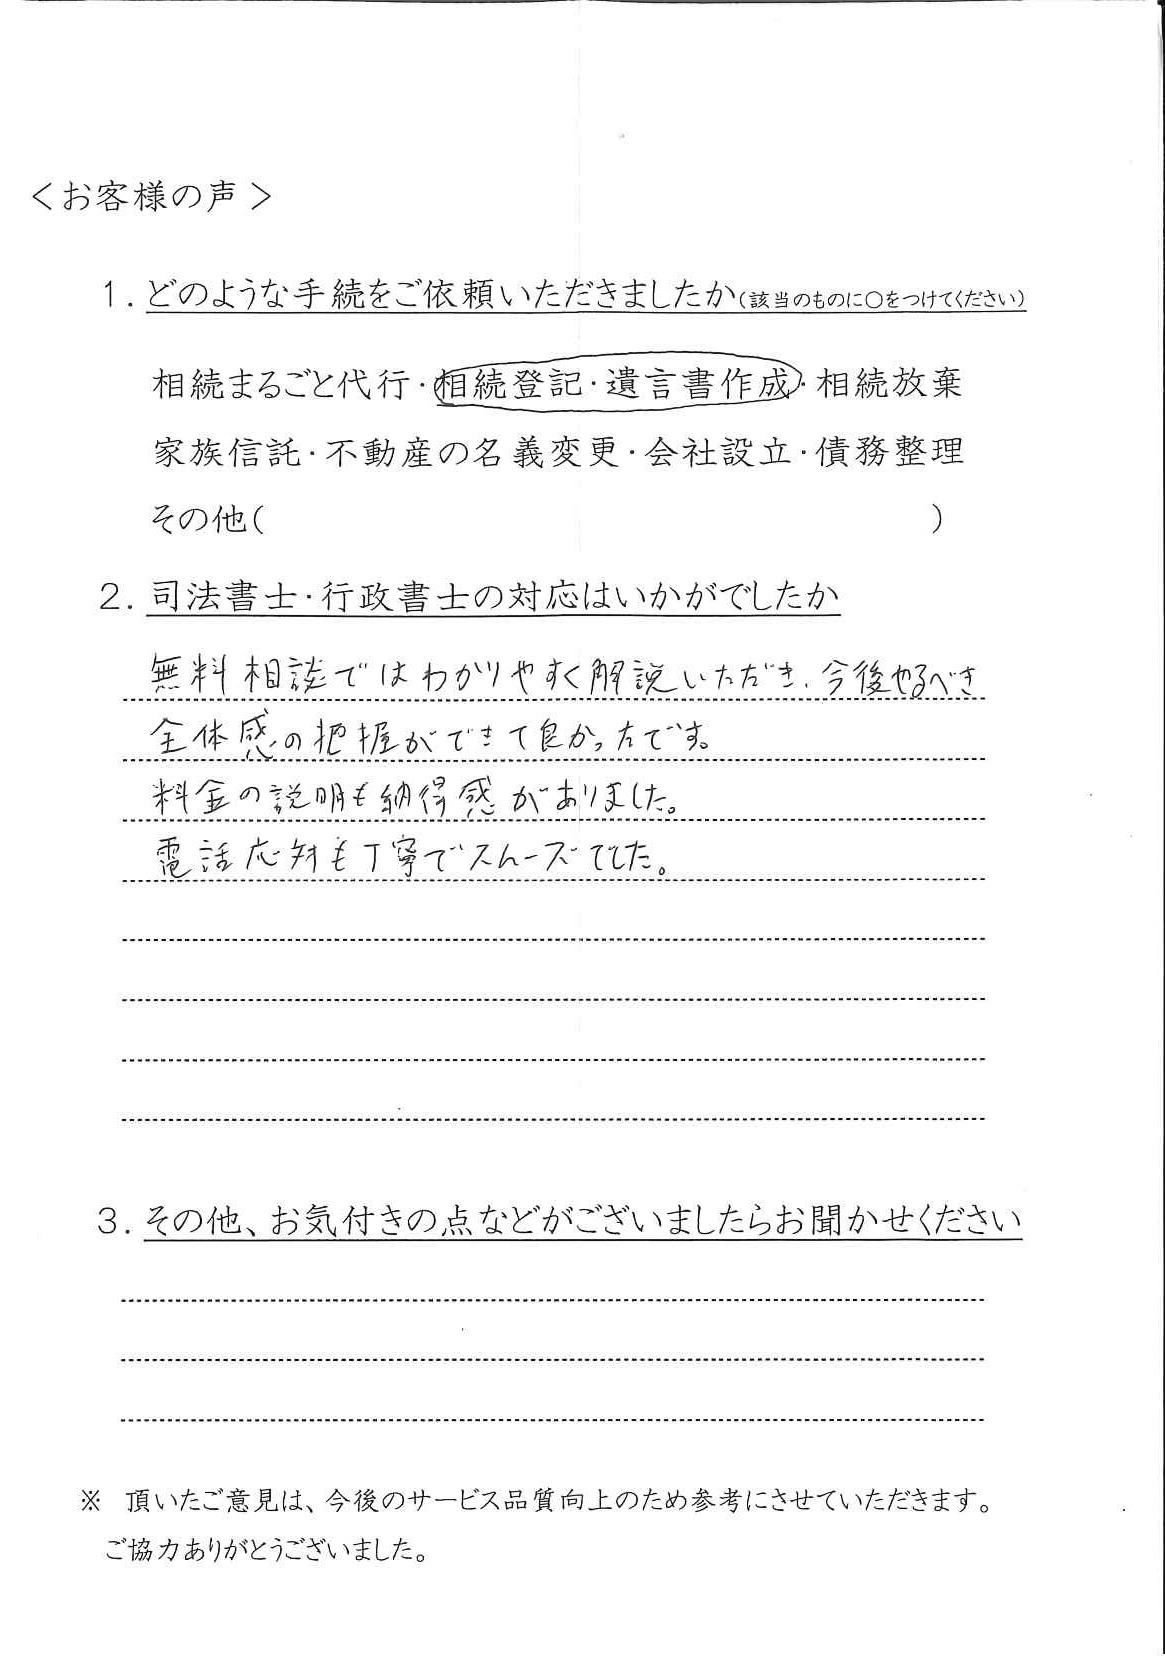 ＜お客様の声＞
１．どのような手続をご依頼いただきましたか（該当のものに〇をつけてください）
相続まるごと代行・相続登記・遺言書作成・相続放棄
家族信託・不動産の名義変更・会社設立・債務整理
その他（　　　　　　　　　　　　　　　　　　）
２．司法書士・行政書士の対応はいかがでしたか
無料相談ではわかりやすく解説いただき、今後やるべき
全体感の把握ができて良かったです。
料金の説明も納得感がありました。
電話応対も丁寧でスムーズでした。
３．その他、お気付きの点などがございましたらお聞かせください
※　頂いたご意見は、今後のサービス品質向上のため参考にさせていただきます。
ご協力ありがとうございました。